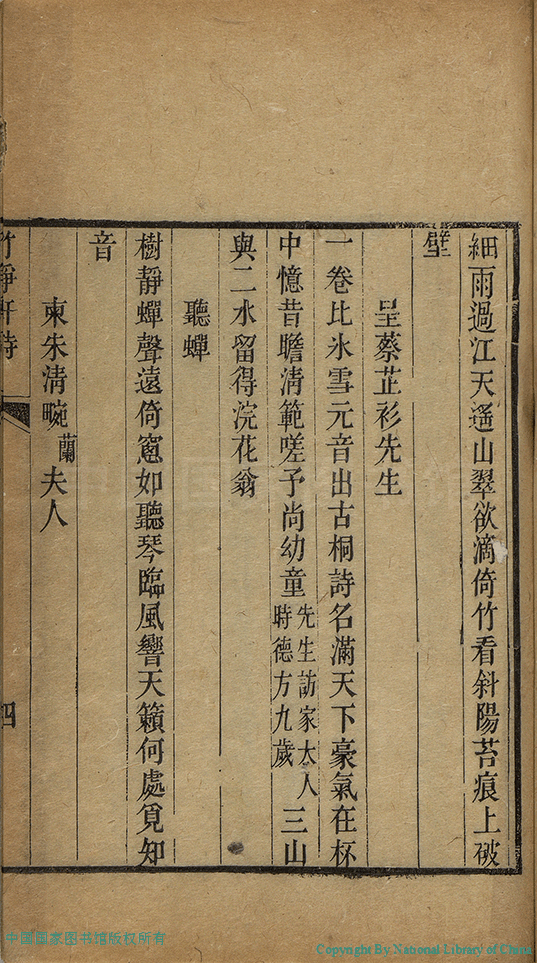 細雨過江天遥山翠欲滴倚竹看斜陽苔痕上破
壁
呈蔡芷衫先生
一卷比氷雪元音出古桐詩名滿天下豪氣在杯
中憶昔瞻清範嗟予尚幼童先生訪家太人時德方九歲三山
與二水留得浣花翁
聽蟬
樹靜蟬聲遠倚窻如聽琴臨風響天籟何處覓知
音
柬朱清畹蘭夫人
竹靜軒詩
四
中国国家图书馆版权所有
Copyright By National Library of China